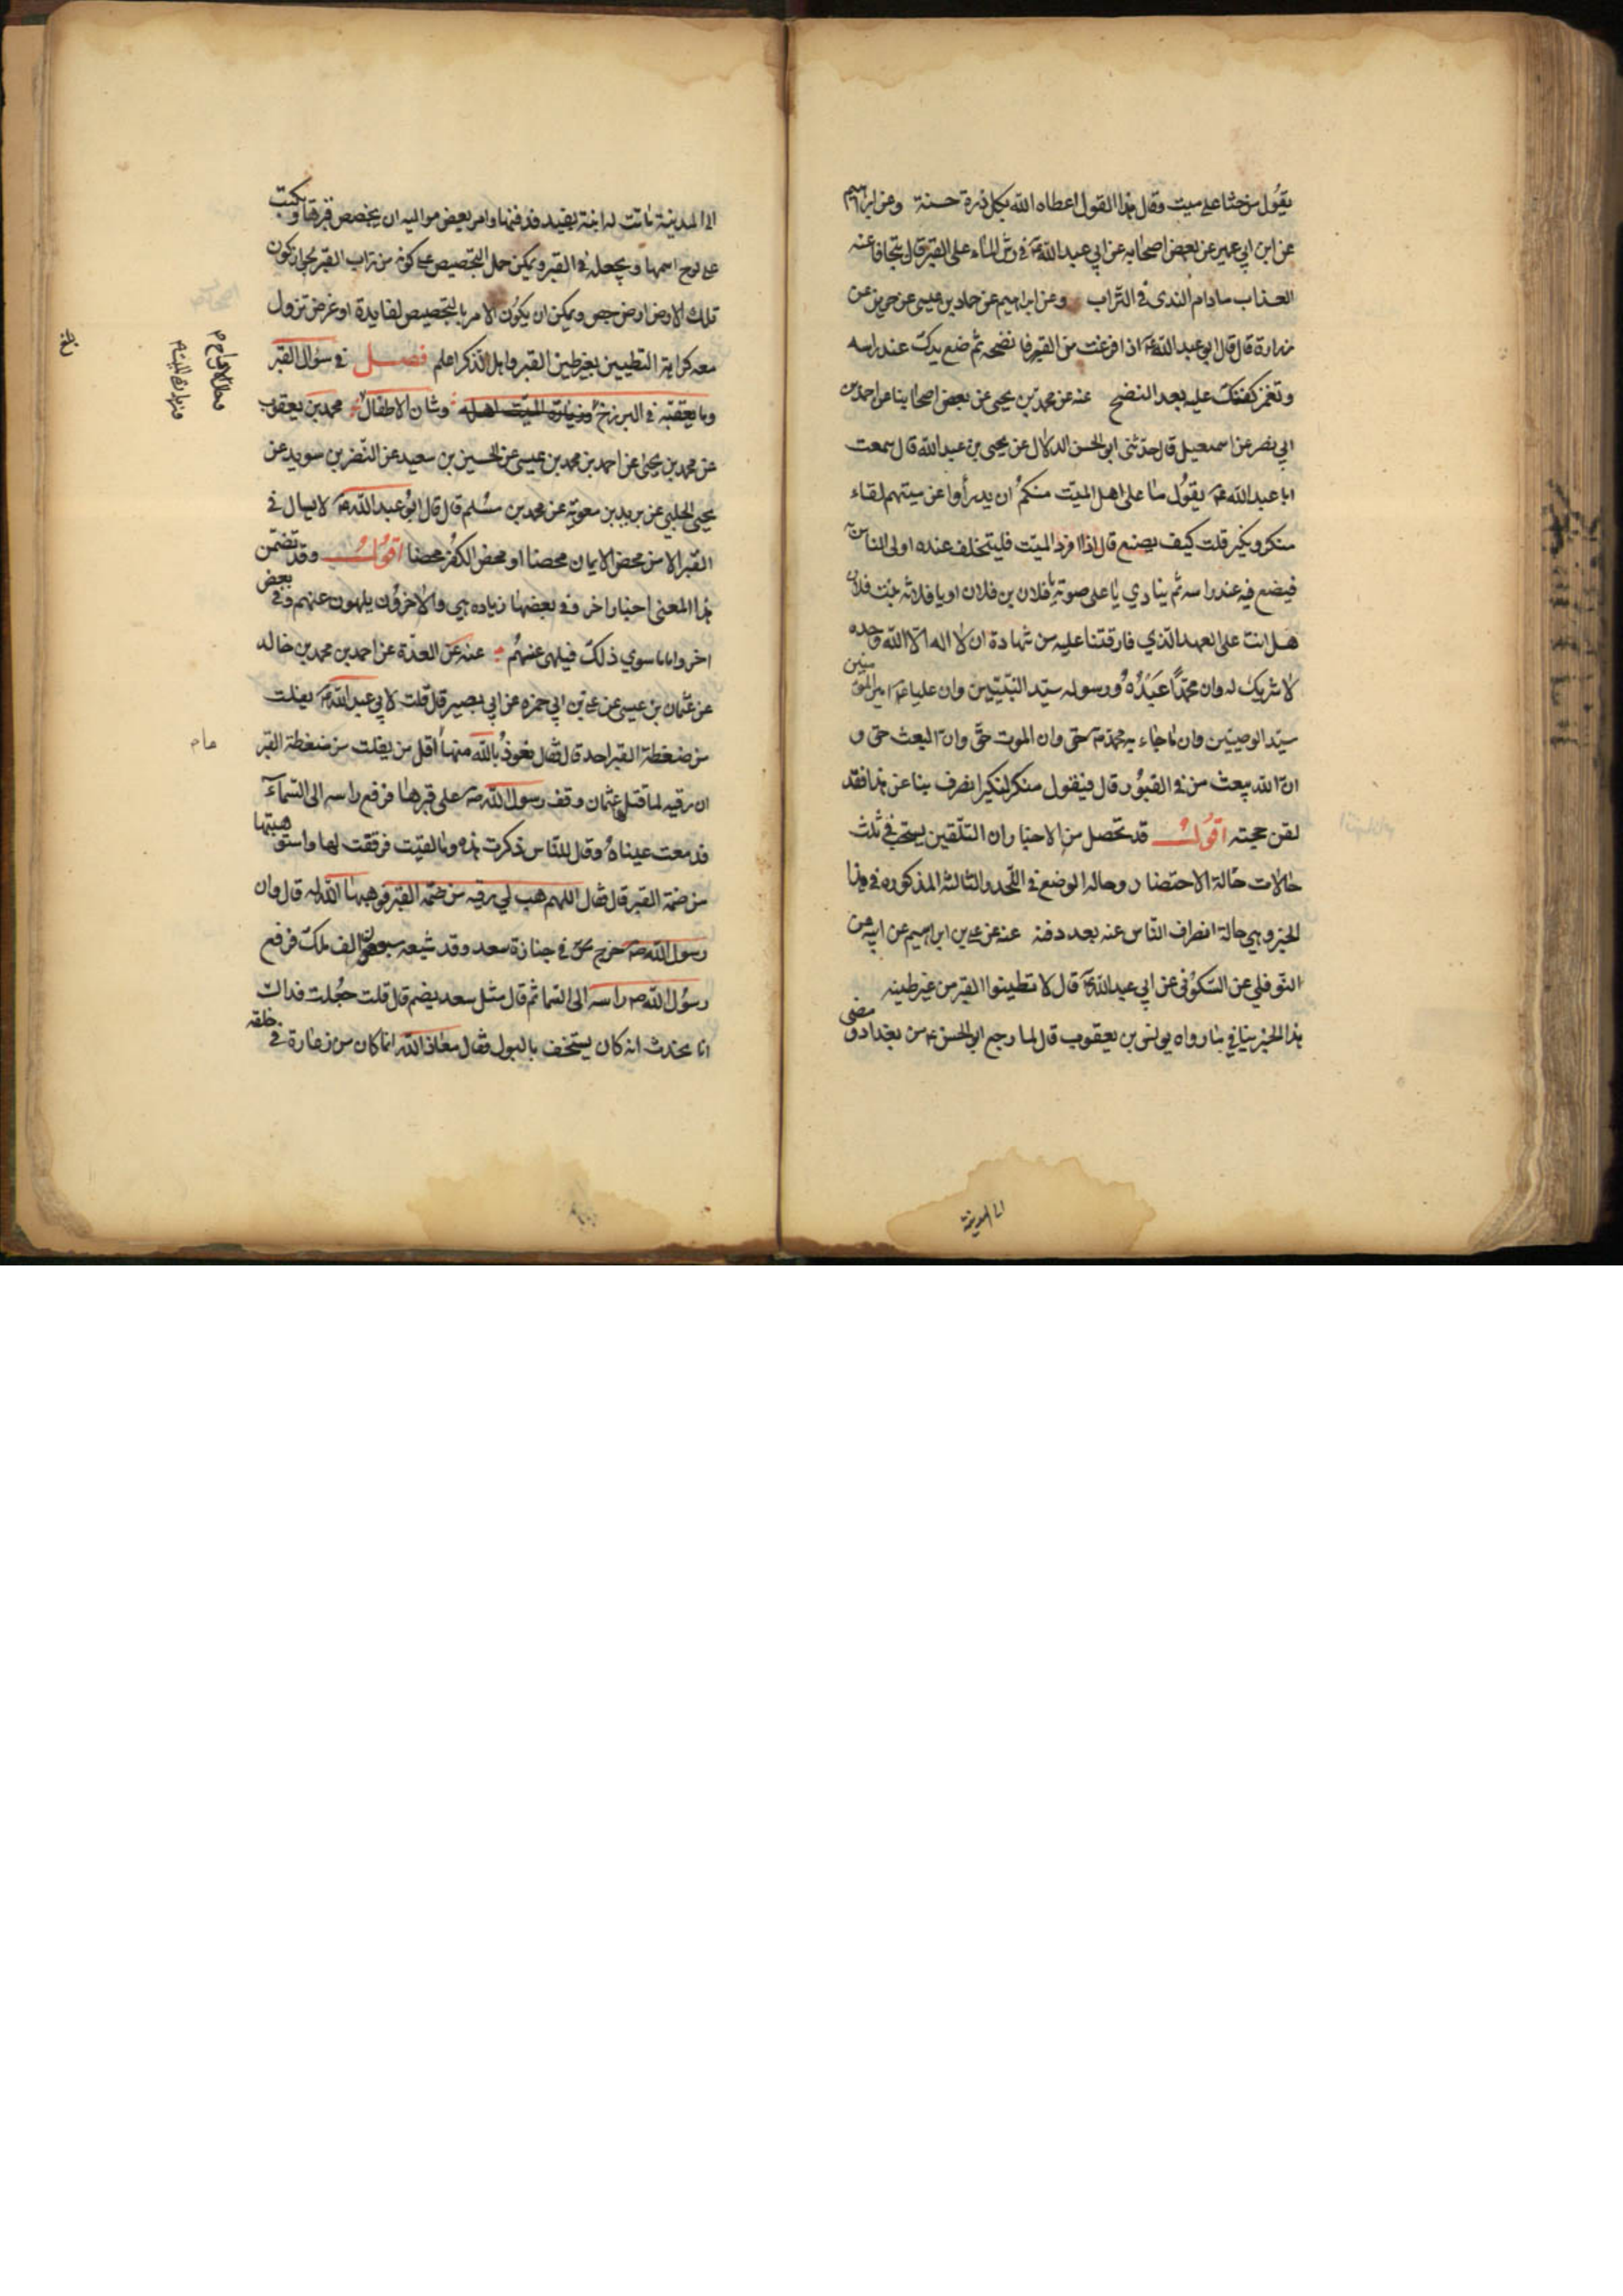 يقول من حثا على ميت وقال هذا القول اعطاه الله بكل ذرة حسنة وعن ابراهيم
عن ابن ابي عمير عن بعض اصحابه عن ابي عبد الله ع في رش الماء على القبر قال يتجافا عنه
العذاب مادام الندى في التراب وعن ابراهيم عن حماد بن عيسى عن حريز عن
زرارة قال قال ابو عبد الله ع اذا فرغت من القبر فانضحه ثم ضع يدك عند راسه
وتغمز كفك عليه بعد النضح عنه عن محمد بن يحيى عن بعض اصحابنا عن احمد بن
ابي نصر عن اسمعيل قال حدثنى ابو الحسن الدلال عن يحيى بن عبد الله قال سمعت
ابا عبد الله ع يقول ما على اهل الميت منكم ان يدرأوا عن ميتهم لقاء
منكر ونكير قلت كيف يصنع قال اذا افرد الميت فليتخلف عنده اولى الناس به
فيضع فيه عند راسه ثم ينادي باعلى صوته يا فلان بن فلان او يا فلانه بنت فلان
هل انت على العهد الذي فارقتنا عليه من شهادة ان لا اله الا الله وحده
لا شريك له وان محمدا عبده ورسوله سيد النبيين وان عليا ع امير المؤمنين
سيد الوصيين وان ما جاء به محمد ص حق وان الموت حق وان البعث حق و
ان الله يبعث من في القبور قال فيقول منكر لنكير انصرف بنا عن هذا فقد
لقن حجته اقول قد تحصل من الاخبار ان التلقين يستحب في ثلث
حالات حالة الاحتضار وحاله الوضع في اللحد والثالثة المذكوره في هذا
الخبر وهي حالة انصراف الناس عنه بعد دفنه عنه عن علي بن ابراهيم عن ابيه عن
النوفلي عن السكوني عن ابي عبد الله ع قال لا تطينوا القبر من غير طينه
هذا الخبر ينافي ما رواه يونس بن يعقوب قال لما رجع ابو الحسن ع من بغداد ومضى
الى المدينة
الى المدينة ماتت له ابنة بفيد فدفنها وامر بعض مواليه ان يجصص قبرها ويكتب
على لوح اسمها ويجعله في القبر ويمكن حمل التجصيص على كونه من تراب القبر بان تكون
تلك الارض ارض جص ويمكن ان يكون الامر بالتجصيص لفايدة او غرض تزول
معه كراهة التطيين بغير طين القبر واهل الذكر اعلم فصل في سؤال القبر
وما يعقبه في البرزخ وزيارة الميت اهله وشان الاطفال محمد بن يعقوب
عن محمد بن يحيى عن احمد بن محمد بن عيسى عن الحسين بن سعيد عن النضر بن سويد عن
يحيى الحلبي عن بريد بن معوية عن محمد بن مسلم قال قال ابو عبد الله ع لا يسال في
القبر الا من محض الايمان محضا او محض الكفر محضا اقول وقد تضمن
هذا المعنى اخبار اخر وفي بعضها زياده هي والاخرون يلهون عنهم وفي بعض
اخر واما ما سوي ذلك فيلهى عنهم عنه عن العدة عن احمد بن محمد بن خالد
عن عثمان بن عيسى عن علي بن ابي حمزه عن ابي بصير قال قلت لابي عبد الله ع يفلت
من ضغطة القبر احد قال فقال نعوذ بالله منها ما اقل من يفلت من ضغطة القبر
ان رقيه لما قتلها عثمان وقف رسول الله ص على قبرها فرفع راسه الى السماء
فدمعت عيناه وقال للناس ذكرت هذه وما لقيت فرققت لها واستوهبتها
من ضمة القبر قال فقال اللهم هب لي رقيه من ضمه القبر فوهبها الله له قال وان
رسول الله ص خرج في جنازة سعد وقد شيعه سبعون الف ملك فرفع
رسول الله ص راسه الى السما ثم قال مثل سعد يضم قال قلت جعلت فداك
انا نحدث انه كان يستخف بالبول فقال معاذ الله انما كان من زعارة في خلقه